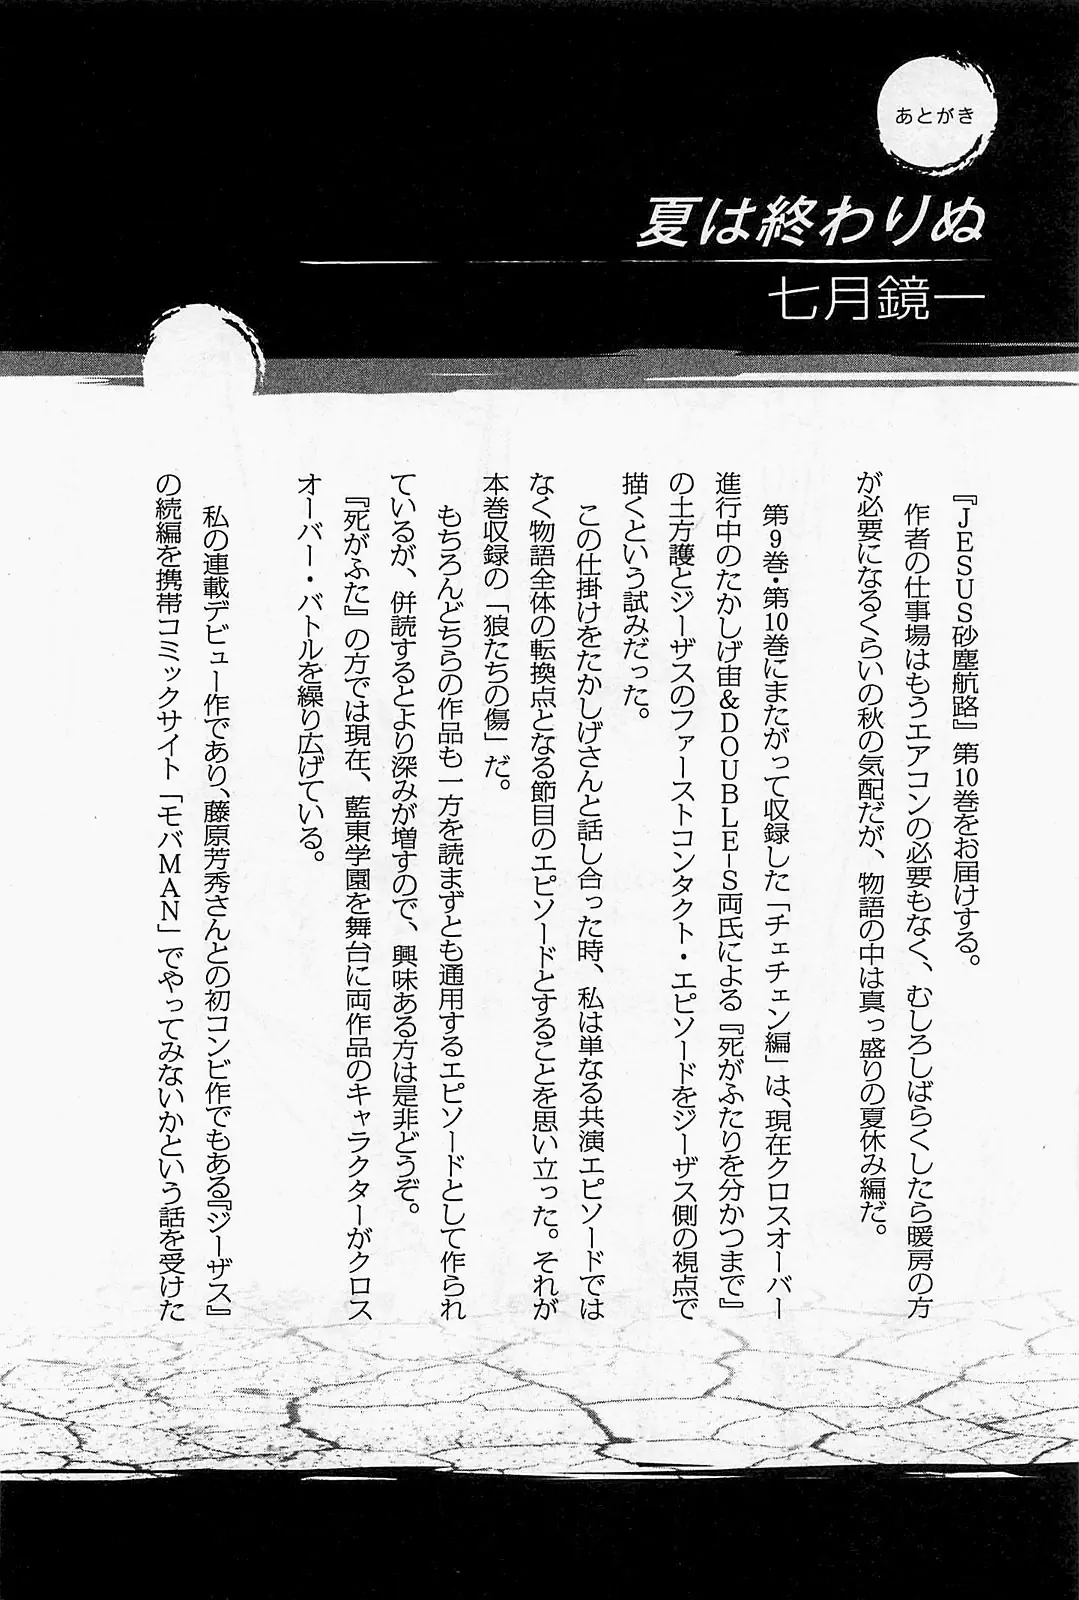 あとがき
夏は終わりぬ
七月鏡一
『JESUS砂塵航路』第10巻をお届けする。
作者の仕事場はもうエアコンの必要もなく、むしろしばらくしたら暖房の方
が必要になるくらいの秋の気配だが、物語の中は真っ盛りの夏休み編だ。
第9巻・第10巻にまたがって収録した「チェチェン編」は、現在クロスオーバー
進行中のたかしげ宙&DOUBLE-S両氏による『死がふたりを分かつまで』
の土方護とジーザスのファーストコンタクト・エピソードをジーザス側の視点で
描くという試みだった。
この仕掛けをたかしげさんと話し合った時、私は単なる共演エピソードでは
なく物語全体の転換点となる節目のエピソードとすることを思い立った。それが
本巻収録の「狼たちの傷」だ。
もちろんどちらの作品も一方を読まずとも通用するエピソードとして作られ
ているが、併読するとより深みが増すので、興味ある方は是非どうぞ。
『死がふた』の方では現在、藍東学園を舞台に両作品のキャラクターがクロス
オーバー・バトルを繰り広げている。
私の連載デビュー作であり、藤原芳秀さんとの初コンビ作でもある『ジーザス』
の続編を携帯コミックサイト「モバMAN」でやってみないかという話を受けた